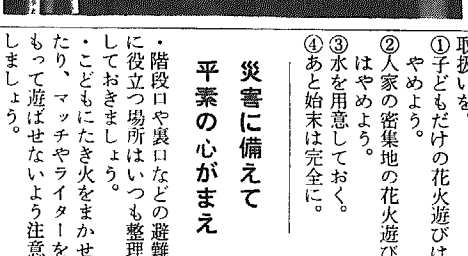 取扱いを。
①子どもだけの花火遊びは
やめよう。
②人家の密集地の花火遊び
はやめよう。
③水を用意しておく。
④あと始末は完全に。
災害に備えて
平素の心がまえ
・階段口や裏口などの避難
に役立つ場所はいつも整理
しておきましょう。
・こどもにたき火をまかせ
たり、マッチやライターを
もって遊ばせないよう注意
しましょう。